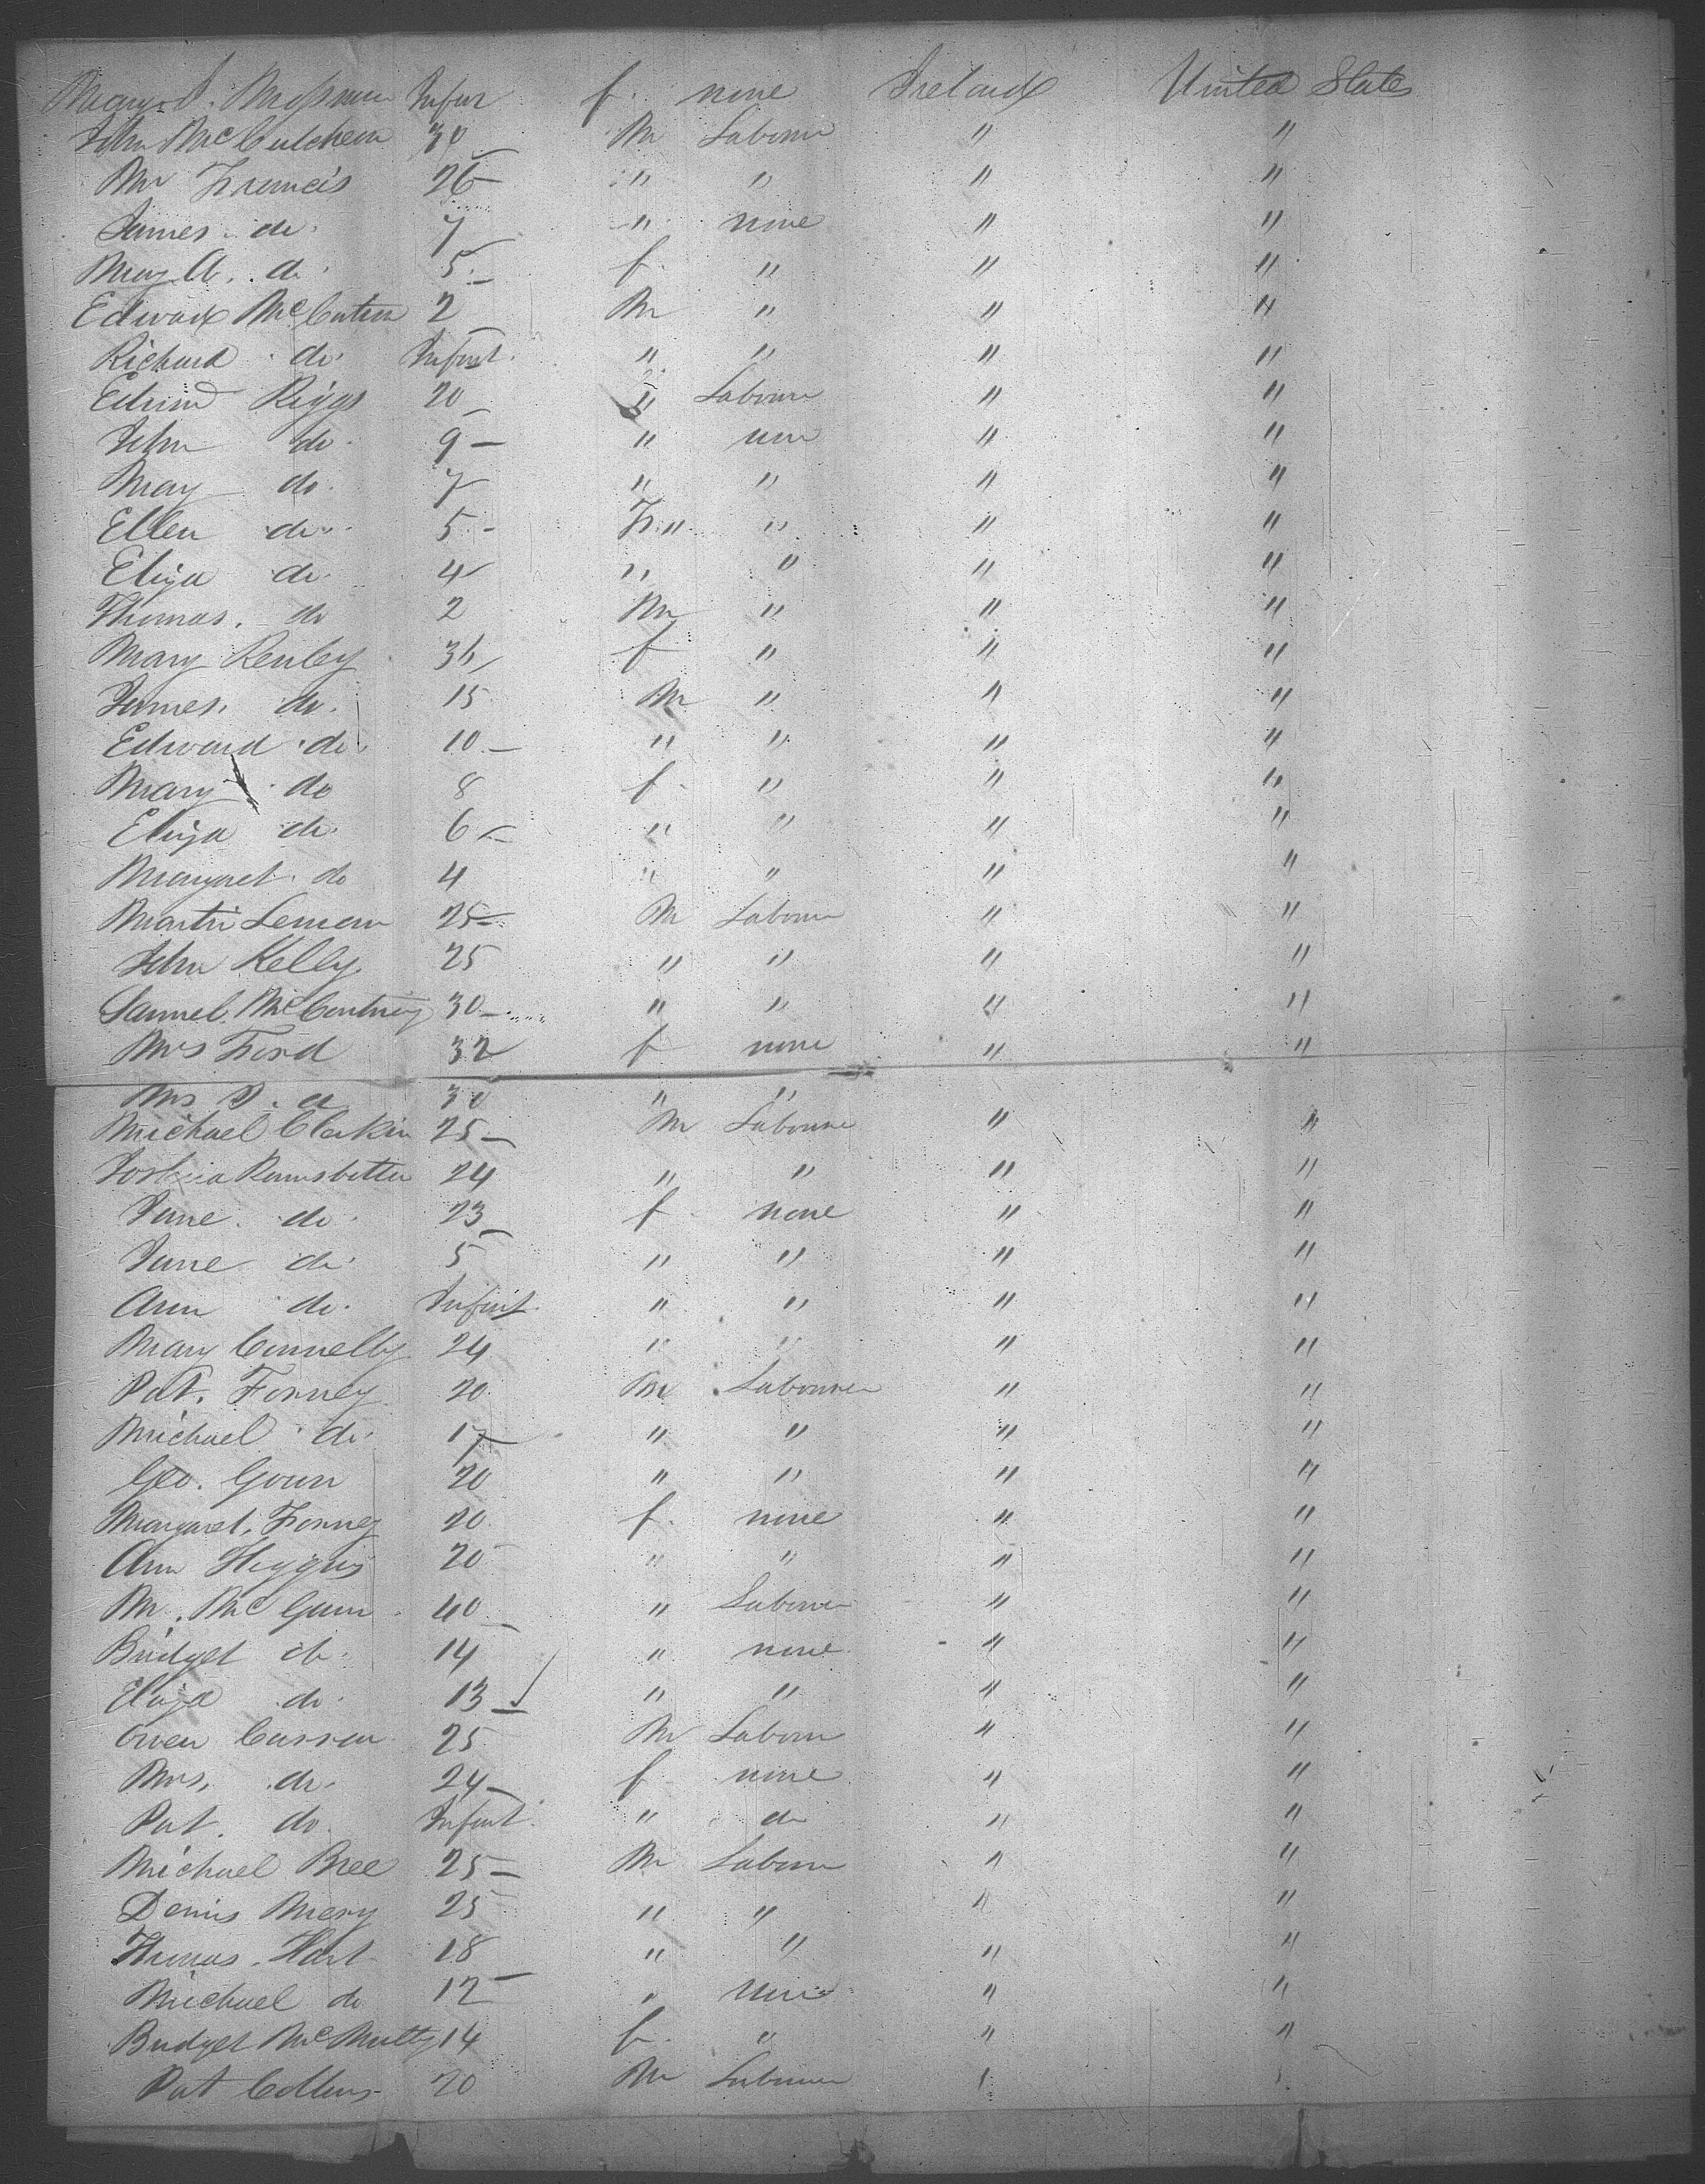 Mary J. Infan f. none Ireland United States
John McCutcheon 30 M Labourer " "
Mr Francis 26 " " " "
James do. 7 " none " "
Mary A. do. 5 f. " " "
Edward McCutcheon 2 M " " "
Richard do. Infant " " " "
Edmund Riggs 20 " Labourer " "
John do. 9 " none " "
Mary do. 7 " " " "
Ellen do. 5 F " " " "
Eliza do. 4 " " " "
Thomas. do 2 M " " "
Mary Renley 36 f " " "
James. do. 15 M " " "
Edward do. 10 " " " "
Mary do 8 f. " " "
Eliza do. 6 " " " "
Margaret do 4 " " " "
Martin Lemon 25 M Labourer " "
John Kelly 25 " " " "
Samuel McCartney 30 " " " "
Mrs Ford 32 f none " "
Mrs 30 " "
Michael Clarkin 25 M Labourer " "
Joshua Ramsbottu 24 " " " "
Jane. do. 23 f none " "
Jane do. 5 " " " "
Ann do. Infant. " " " "
Mary Connelly 24 " " " "
Pat. Forney 20 M Labourer " "
Michael do. 17 " " " "
Geo. Gown 20 " " " "
Margaret. Forney 20 f. none " "
Ann Higgins 20 " " " "
M. McGunn 40 " Labourer " "
Bridget do. 14 " none " "
Eliza do. 13 " " " "
Owen Curren 25 M Labourer " "
Mrs. do. 24 f none " "
Pat. do. Infant " do " "
Michael Bree 25 M Labourer " "
Denis Mery 25 " " " "
Thomas. Hart 18 " " " "
Michael do 12 " none " "
Bridget McNulty 14 f. " " "
Pat Collins 20 M Labourer " "